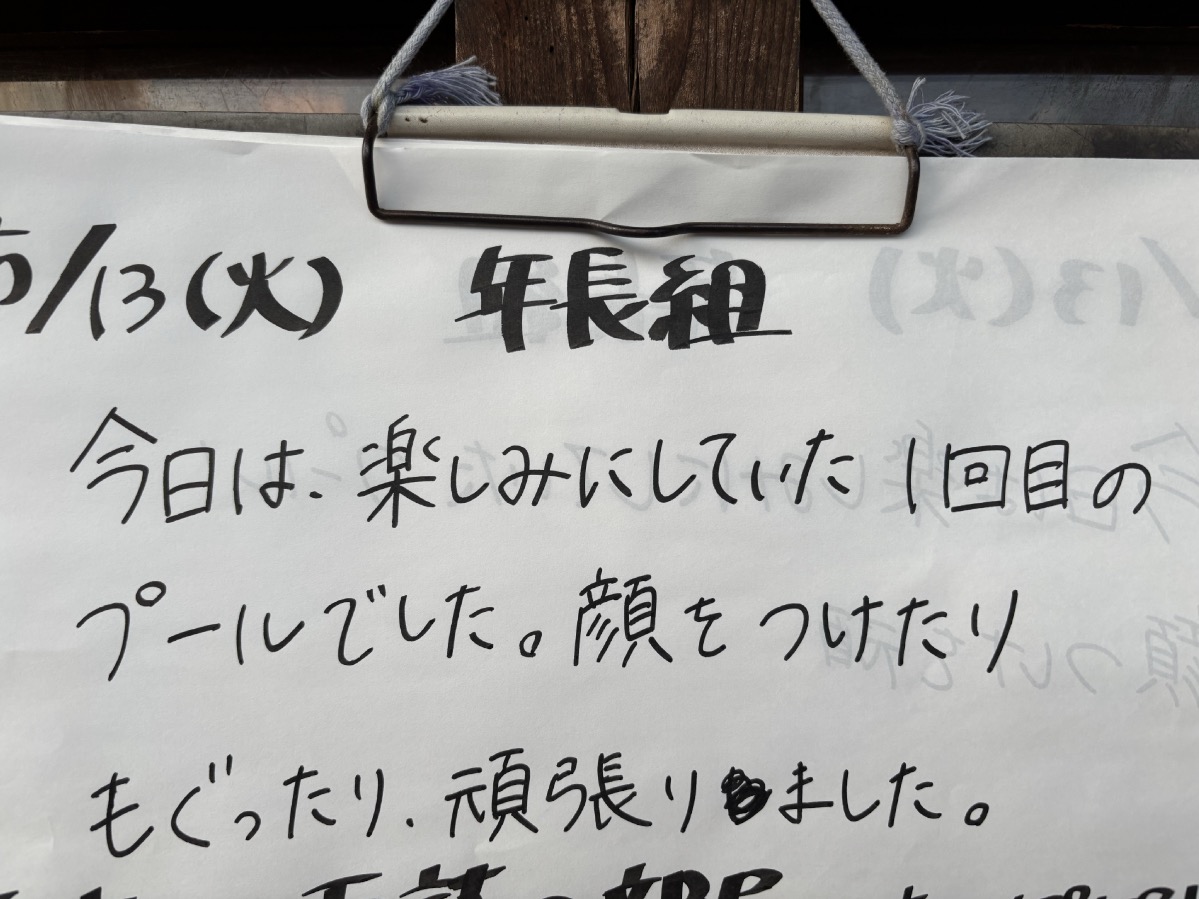 5/13(火) 年長組
今日は、楽しみにしていた1回目の
プールでした。顔をつけたり
もぐったり、頑張りました。